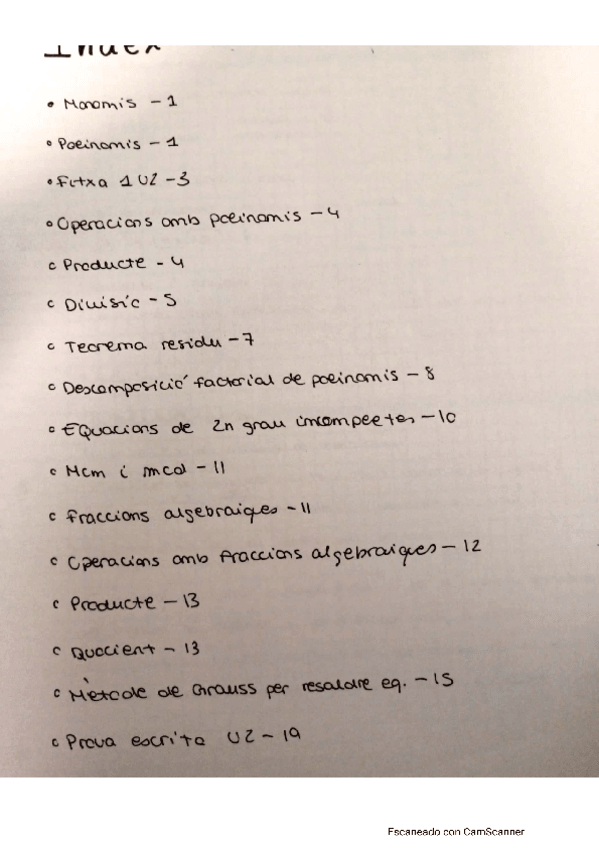 Index
• Monomis - 1
• Polinomis - 1
• Fitxa 1 U2 - 3
• Operacions amb polinomis - 4
• Producte - 4
• Divisió - 5
• Teorema residu - 7
• Descomposició factorial de polinomis - 8
• Equacions de 2n grau incompletes - 10
• Mcm i mcd - 11
• Fraccions algebraiques - 11
• Operacions amb fraccions algebraiques - 12
• Producte - 13
• Quocient - 13
• Mètode de Grauss per resoldre eq. - 15
• Prova escrita U2 - 19
Escaneado con CamScanner